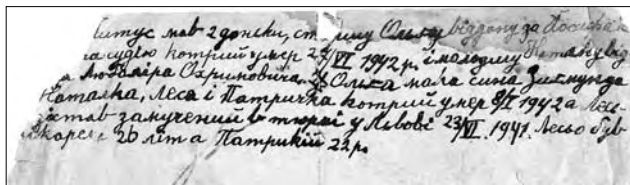 мав 2 доньки, старшу Ольку віддону за
за судею котрий умер 25/VI 1942 р. і молодшу Наталку від
за Любаміра Охримовича. Олька мала сина Зигмунда
Наталка, Леся і Патричка котрий умер 8/I 1942 а Лесь
остав замучений в тюрмі у Львові 23/VI. 1941. Лесьо був
26 літ а Патрикій 22 р.